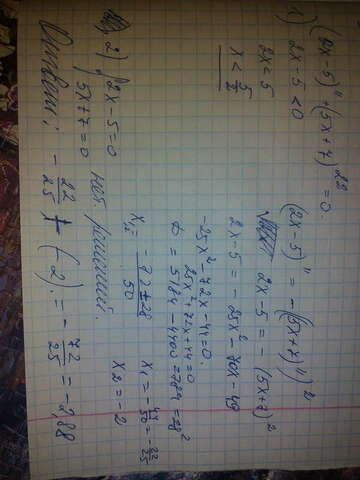 (2x-5)¹¹ + (5x+7)²² = 0.
1) 2x-5<0
2x<5
x < 5/2
(2x-5)¹¹ = -((5x+7)¹¹)²
2x-5 = -(5x+7)²
2x-5 = -25x²-70x-49
-25x²-72x-44=0.
25x²+72x+44=0
D = 5184-4400=784=28²
x₁,₂ = (-72±28)/50
x₁ = -44/50 = -22/25
x₂ = -2
2) { 2x-5=0
5x+7=0
нет решений.
Ответ: -22/25 + (-2) = -72/25 = -2,88